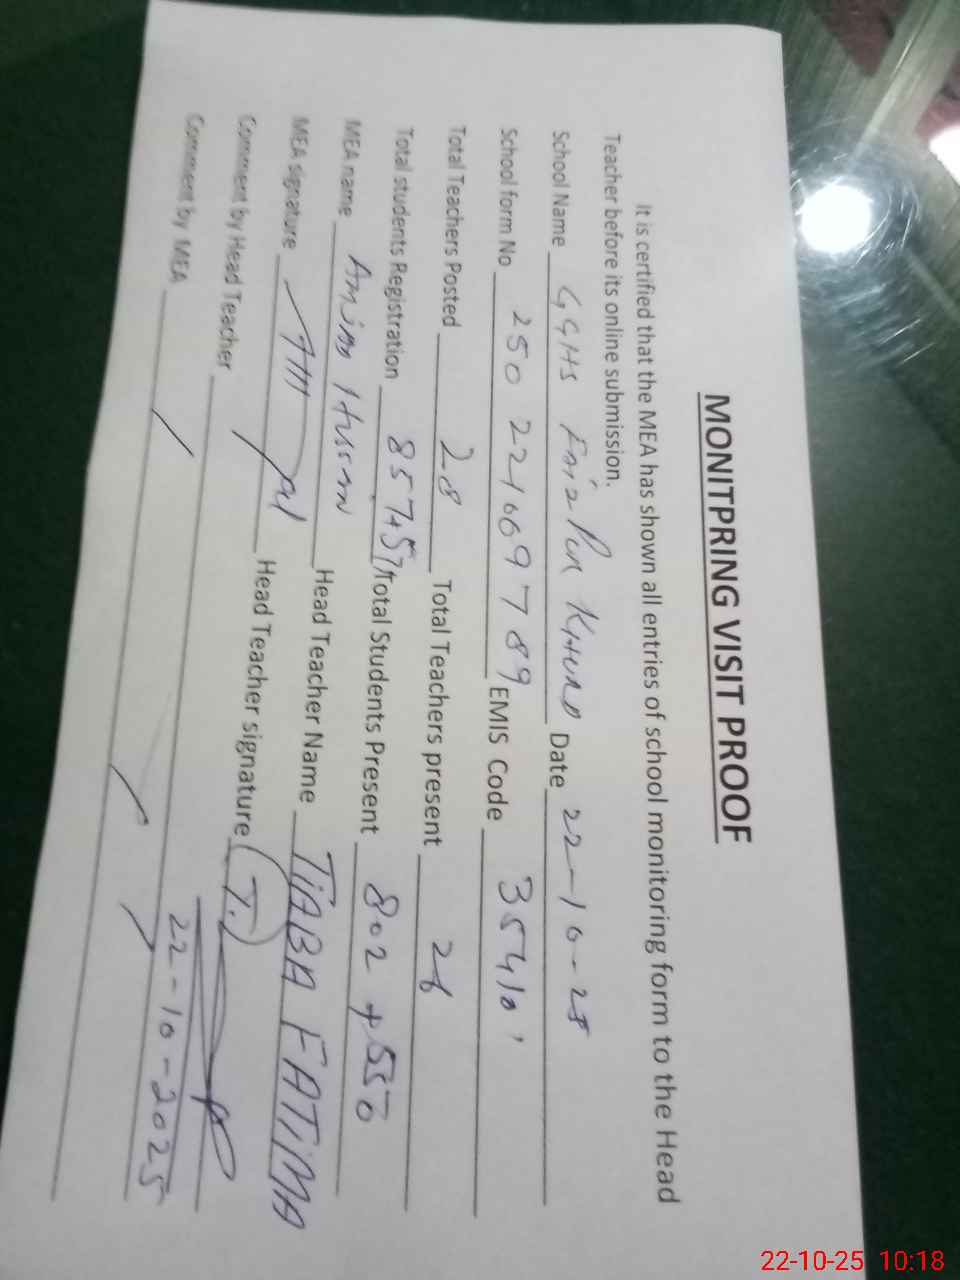 MONITPRING VISIT PROOF
It is certified that the MEA has shown all entries of school monitoring form to the Head
Teacher before its online submission.
School Name GGHS Date 22-10-25
School form No EMIS Code 35410
Total Teachers Posted 28 Total Teachers present 26
Total students Registration Total Students Present 802 + 550
MEA name Head Teacher Name TiABA FATiMA
MEA signature Head Teacher signature (T.)
Comment by Head Teacher
22-10-2025
Comment by MEA
22-10-25 10:18